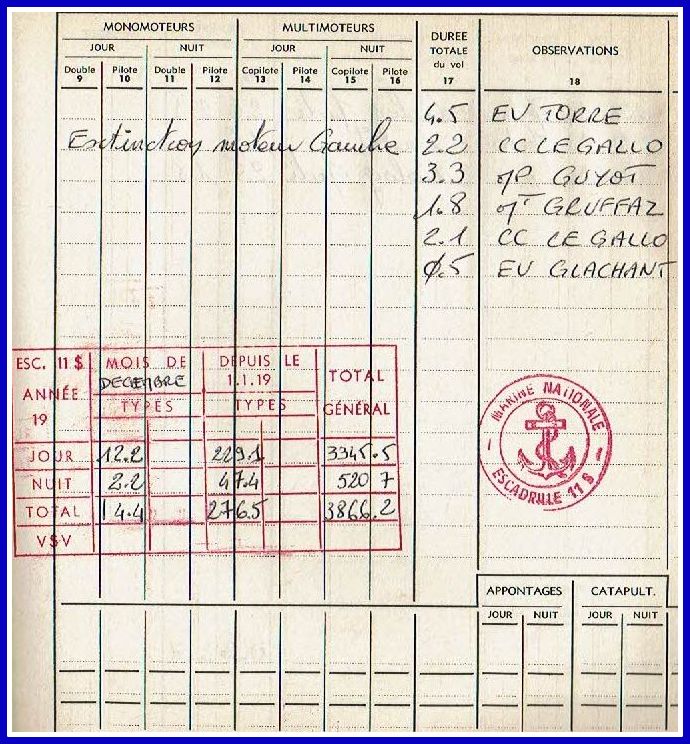 MONOMOTEURS MULTIMOTEURS DUREE TOTALE du vol 17 OBSERVATIONS 18
JOUR NUIT JOUR NUIT
Double 9 Pilote 10 Double 11 Pilote 12 Copilote 13 Pilote 14 Copilote 15 Pilote 16
4.5 EV TORRE
Extinction moteur Gauche 2.2 CC LE GALLO
3.3 MP GUYOT
1.8 MT GRUFFAZ
2.1 CC LE GALLO
0.5 EV GLACHANT
ESC. 11 S MOIS DE DECEMBRE DEPUIS LE 1.1.19 TOTAL GÉNÉRAL
ANNÉE 19 TYPES TYPES
JOUR 12.2 229.1 3345.5
NUIT 2.2 47.4 520 7
TOTAL 14.4 276.5 3866.2
VSV
MARINE NATIONALE
ESCADRILLE 11 S
APPONTAGES CATAPULT.
JOUR NUIT JOUR NUIT